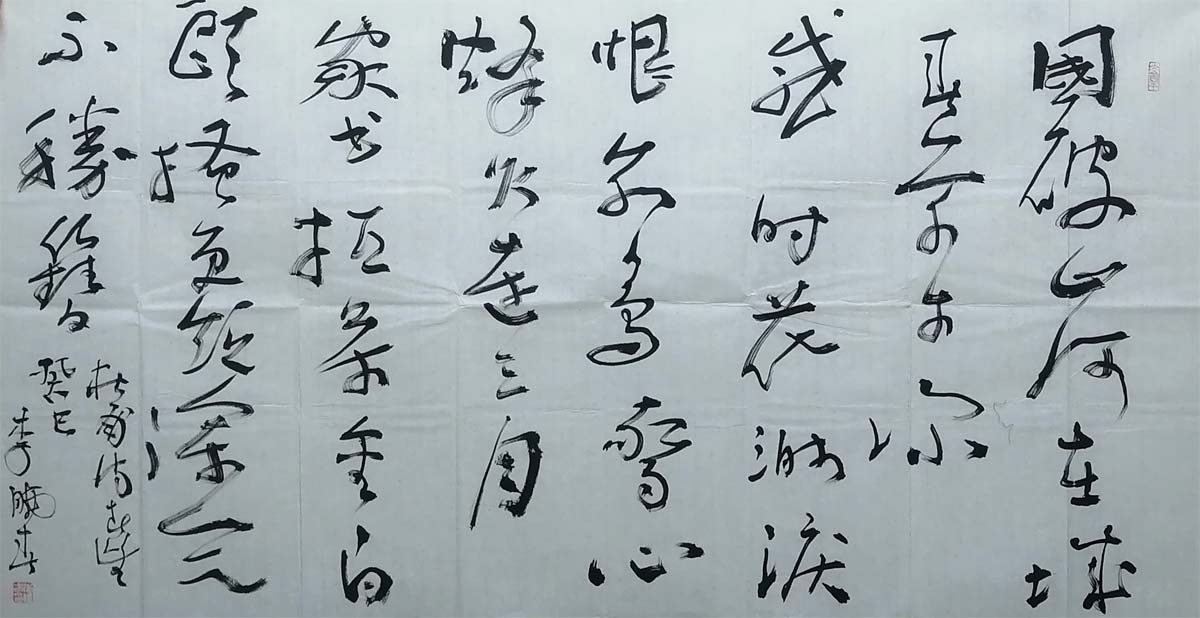 國破山河在城
春草木深
感时花溅淚
恨别鸟驚心
烽火连三月
家书抵萬金白
頭搔更短渾欲
不勝簪
杜甫诗春望
癸巳
李曉春